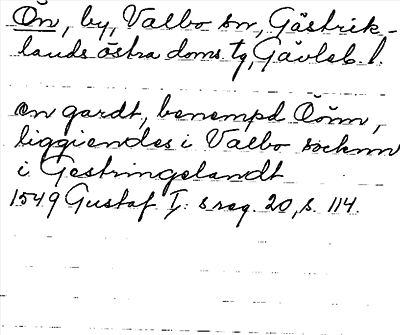 Ön, by, Valbo sn, Gästrik-
lands östra doms tg, Gävleb. l.
en gardt, benempd Öönn,
liggiendes i Valbo socknn
i Gestringelandt
1549 Gustaf I: s reg. 20, s. 114.